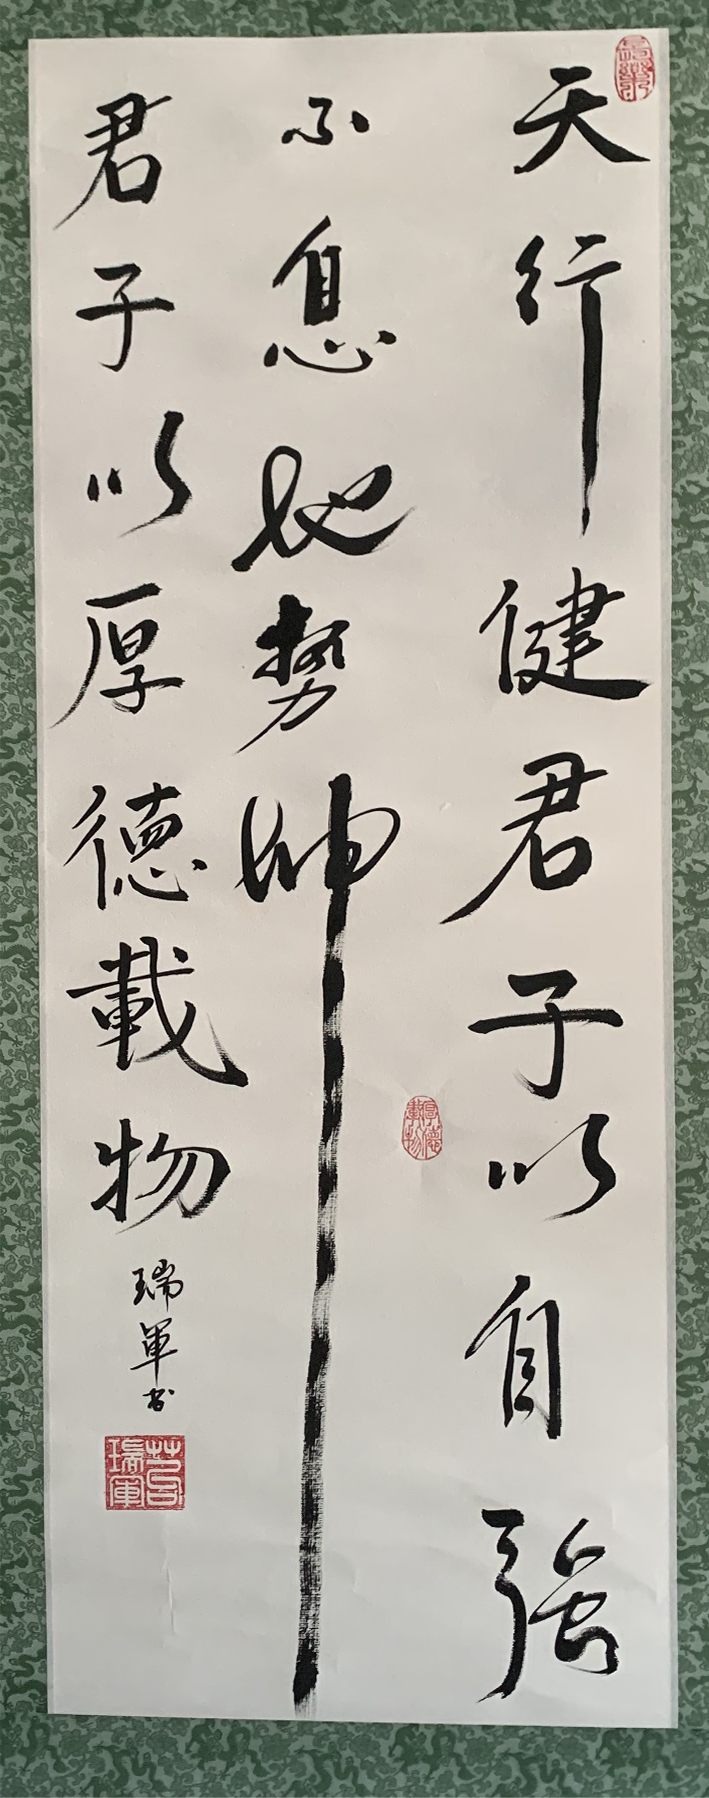 天行健君子以自強
不息地势坤
君子以厚德載物
瑞軍书
厚德載物